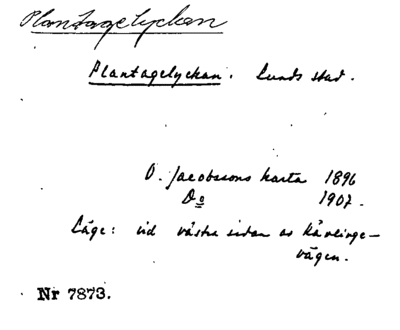 Plantagelyckan
Plantagelyckan. Lunds stad.
O. Jacobssons karta 1896
Do 1907.
Läge: vid västra sidan av Kävlinge-
vägen.
Nr 7873.